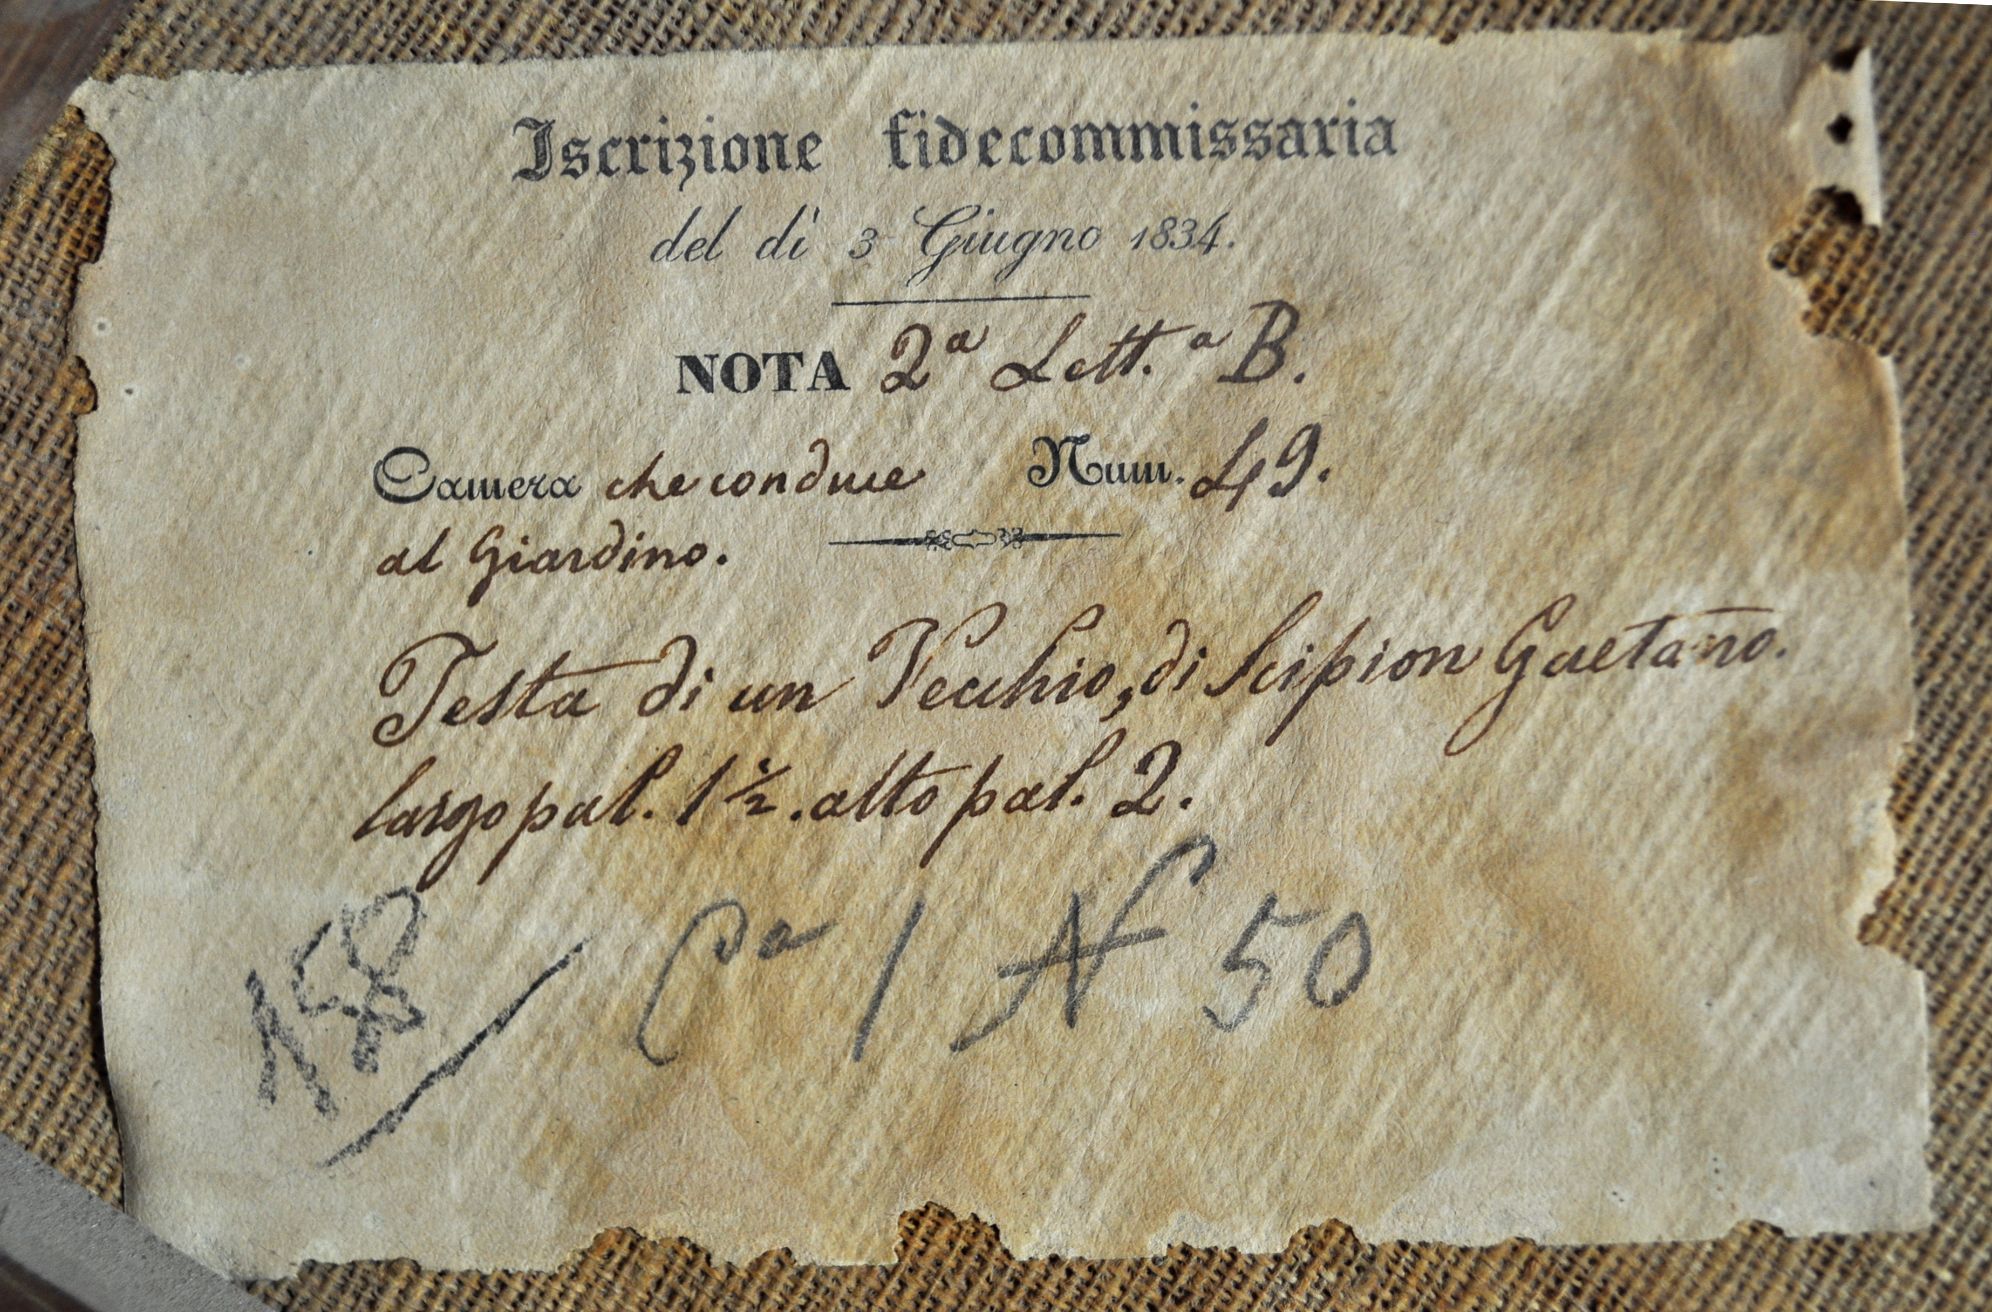 Iscrizione fidecommissaria
del dì 3 Giugno 1834.
NOTA 2ª Lett.ª B.
Camera che conduce Num. 49.
al Giardino.
Testa di un Vecchio, di Scipion Gaetano.
largo pal. 1 ½. alto pal. 2.
1 N 50